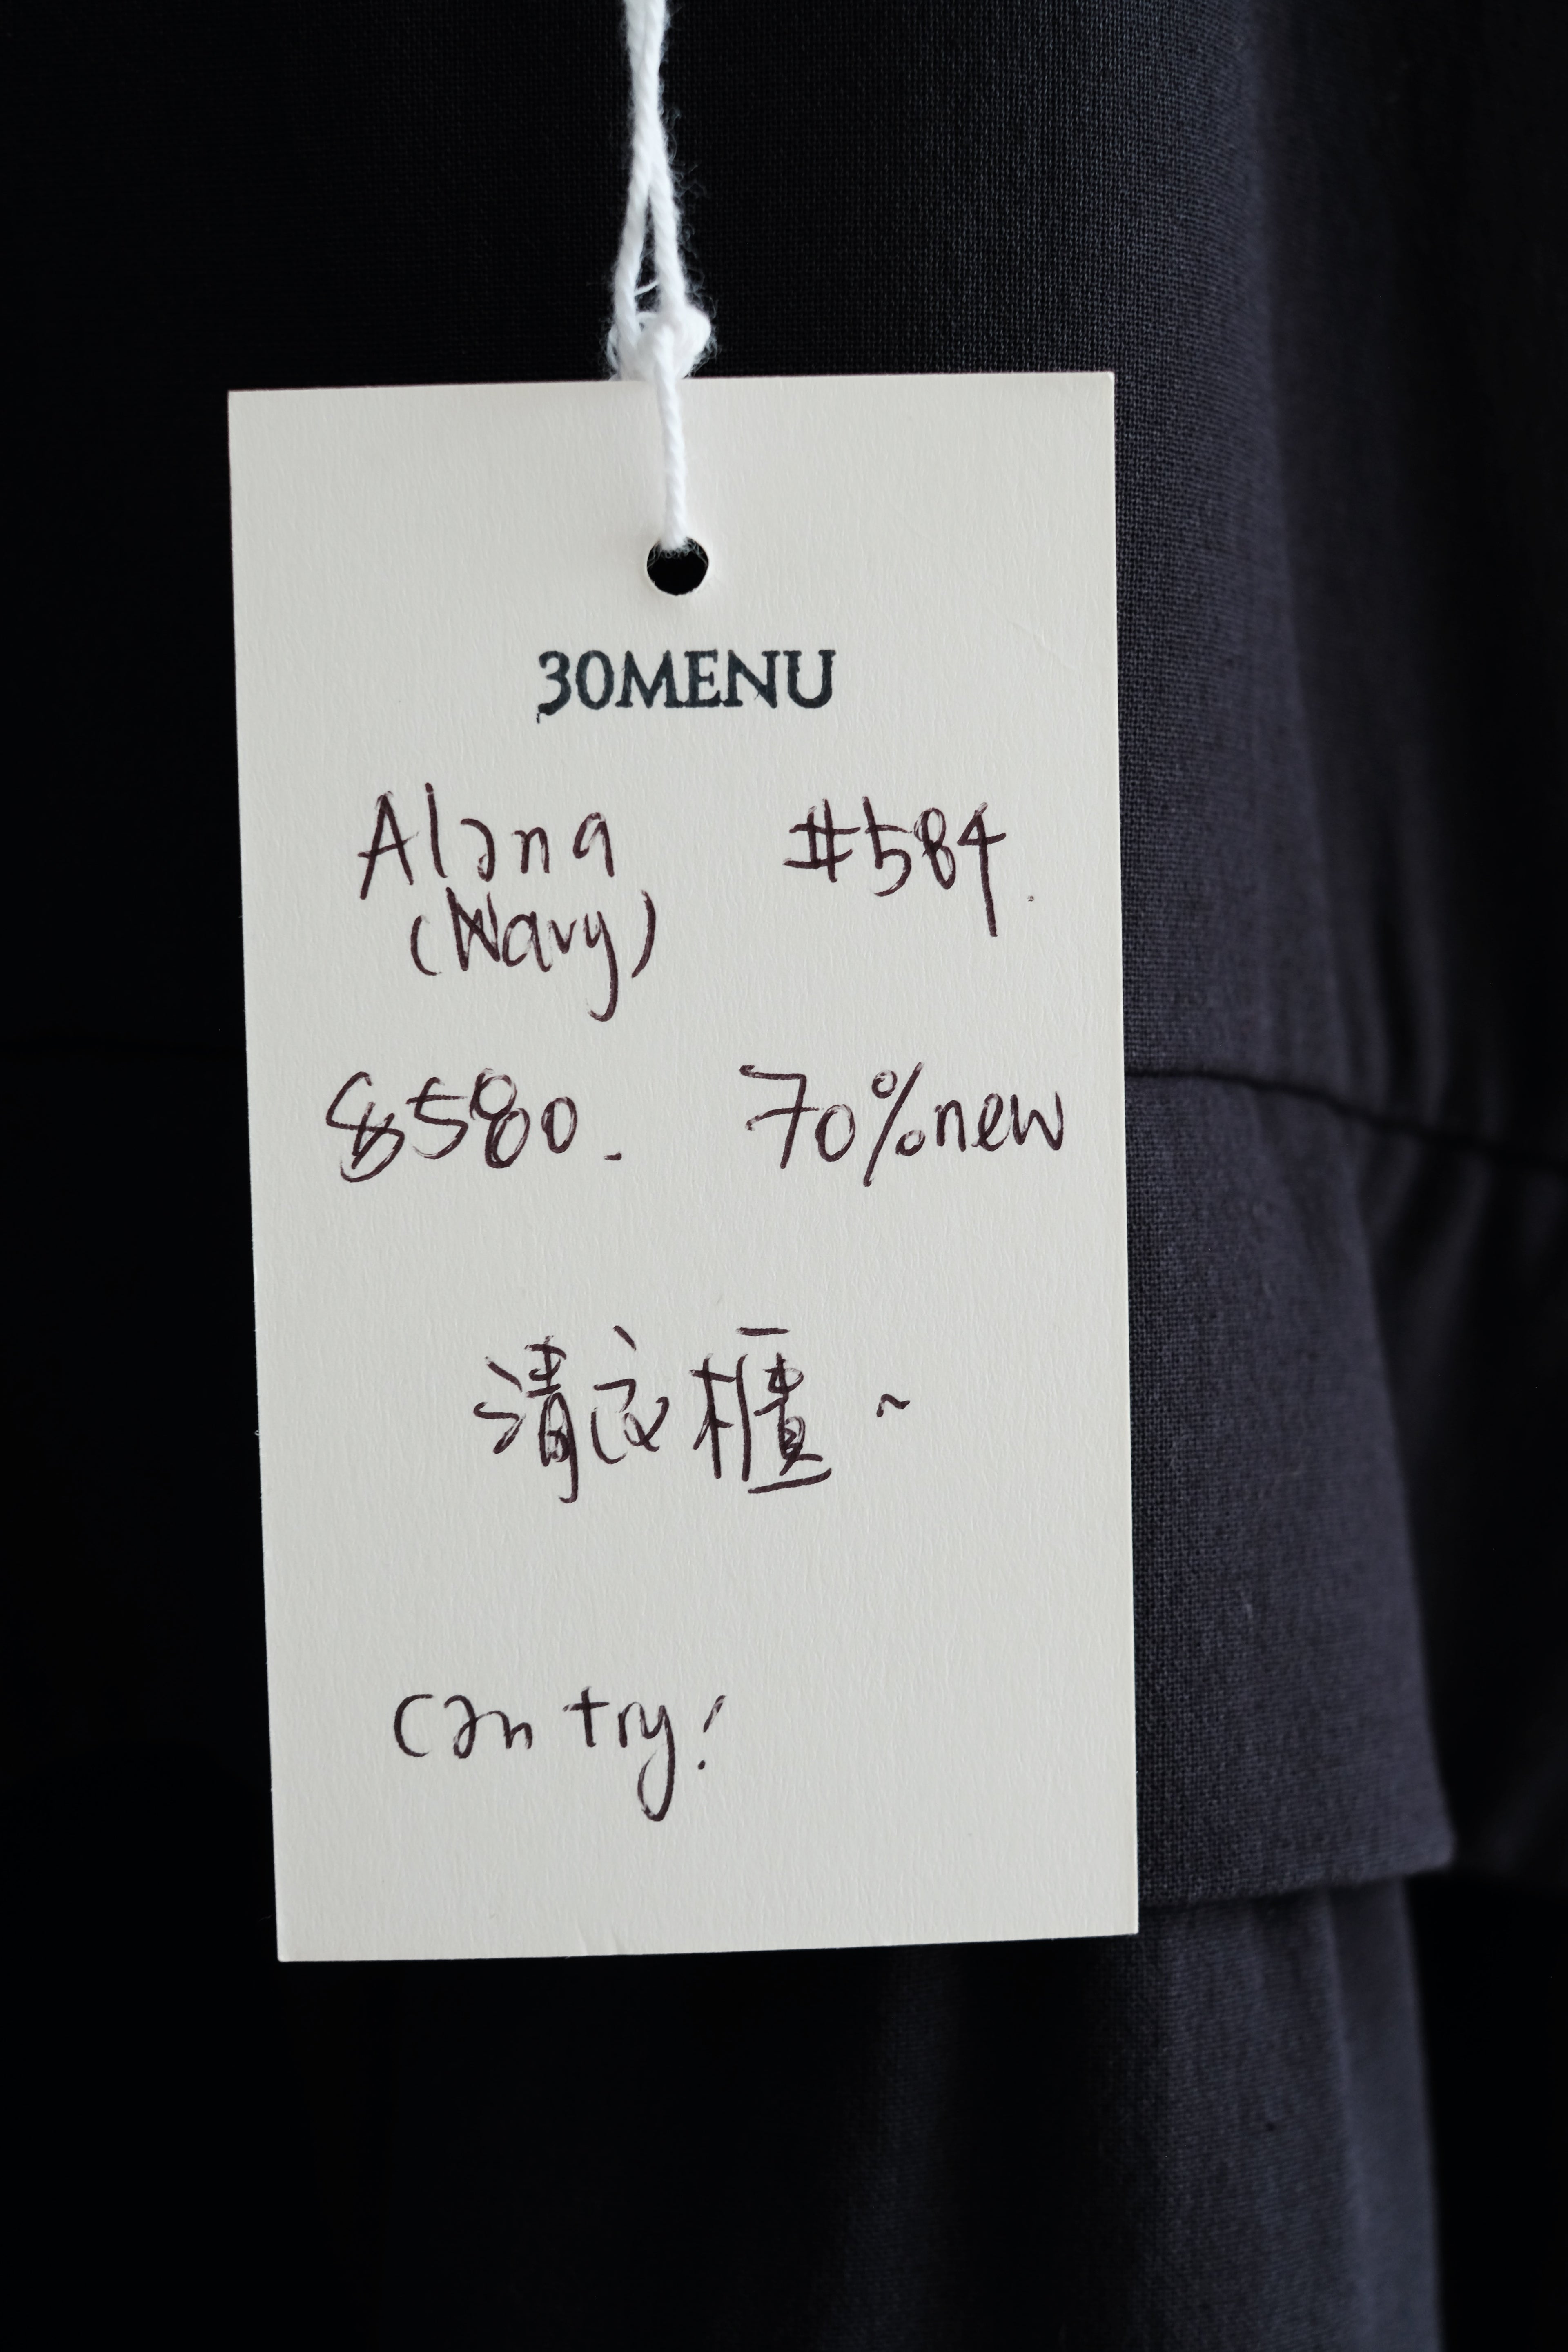 30MENU
Alana #584.
(Navy)
$580. 70%new
清衣櫃~
can try!